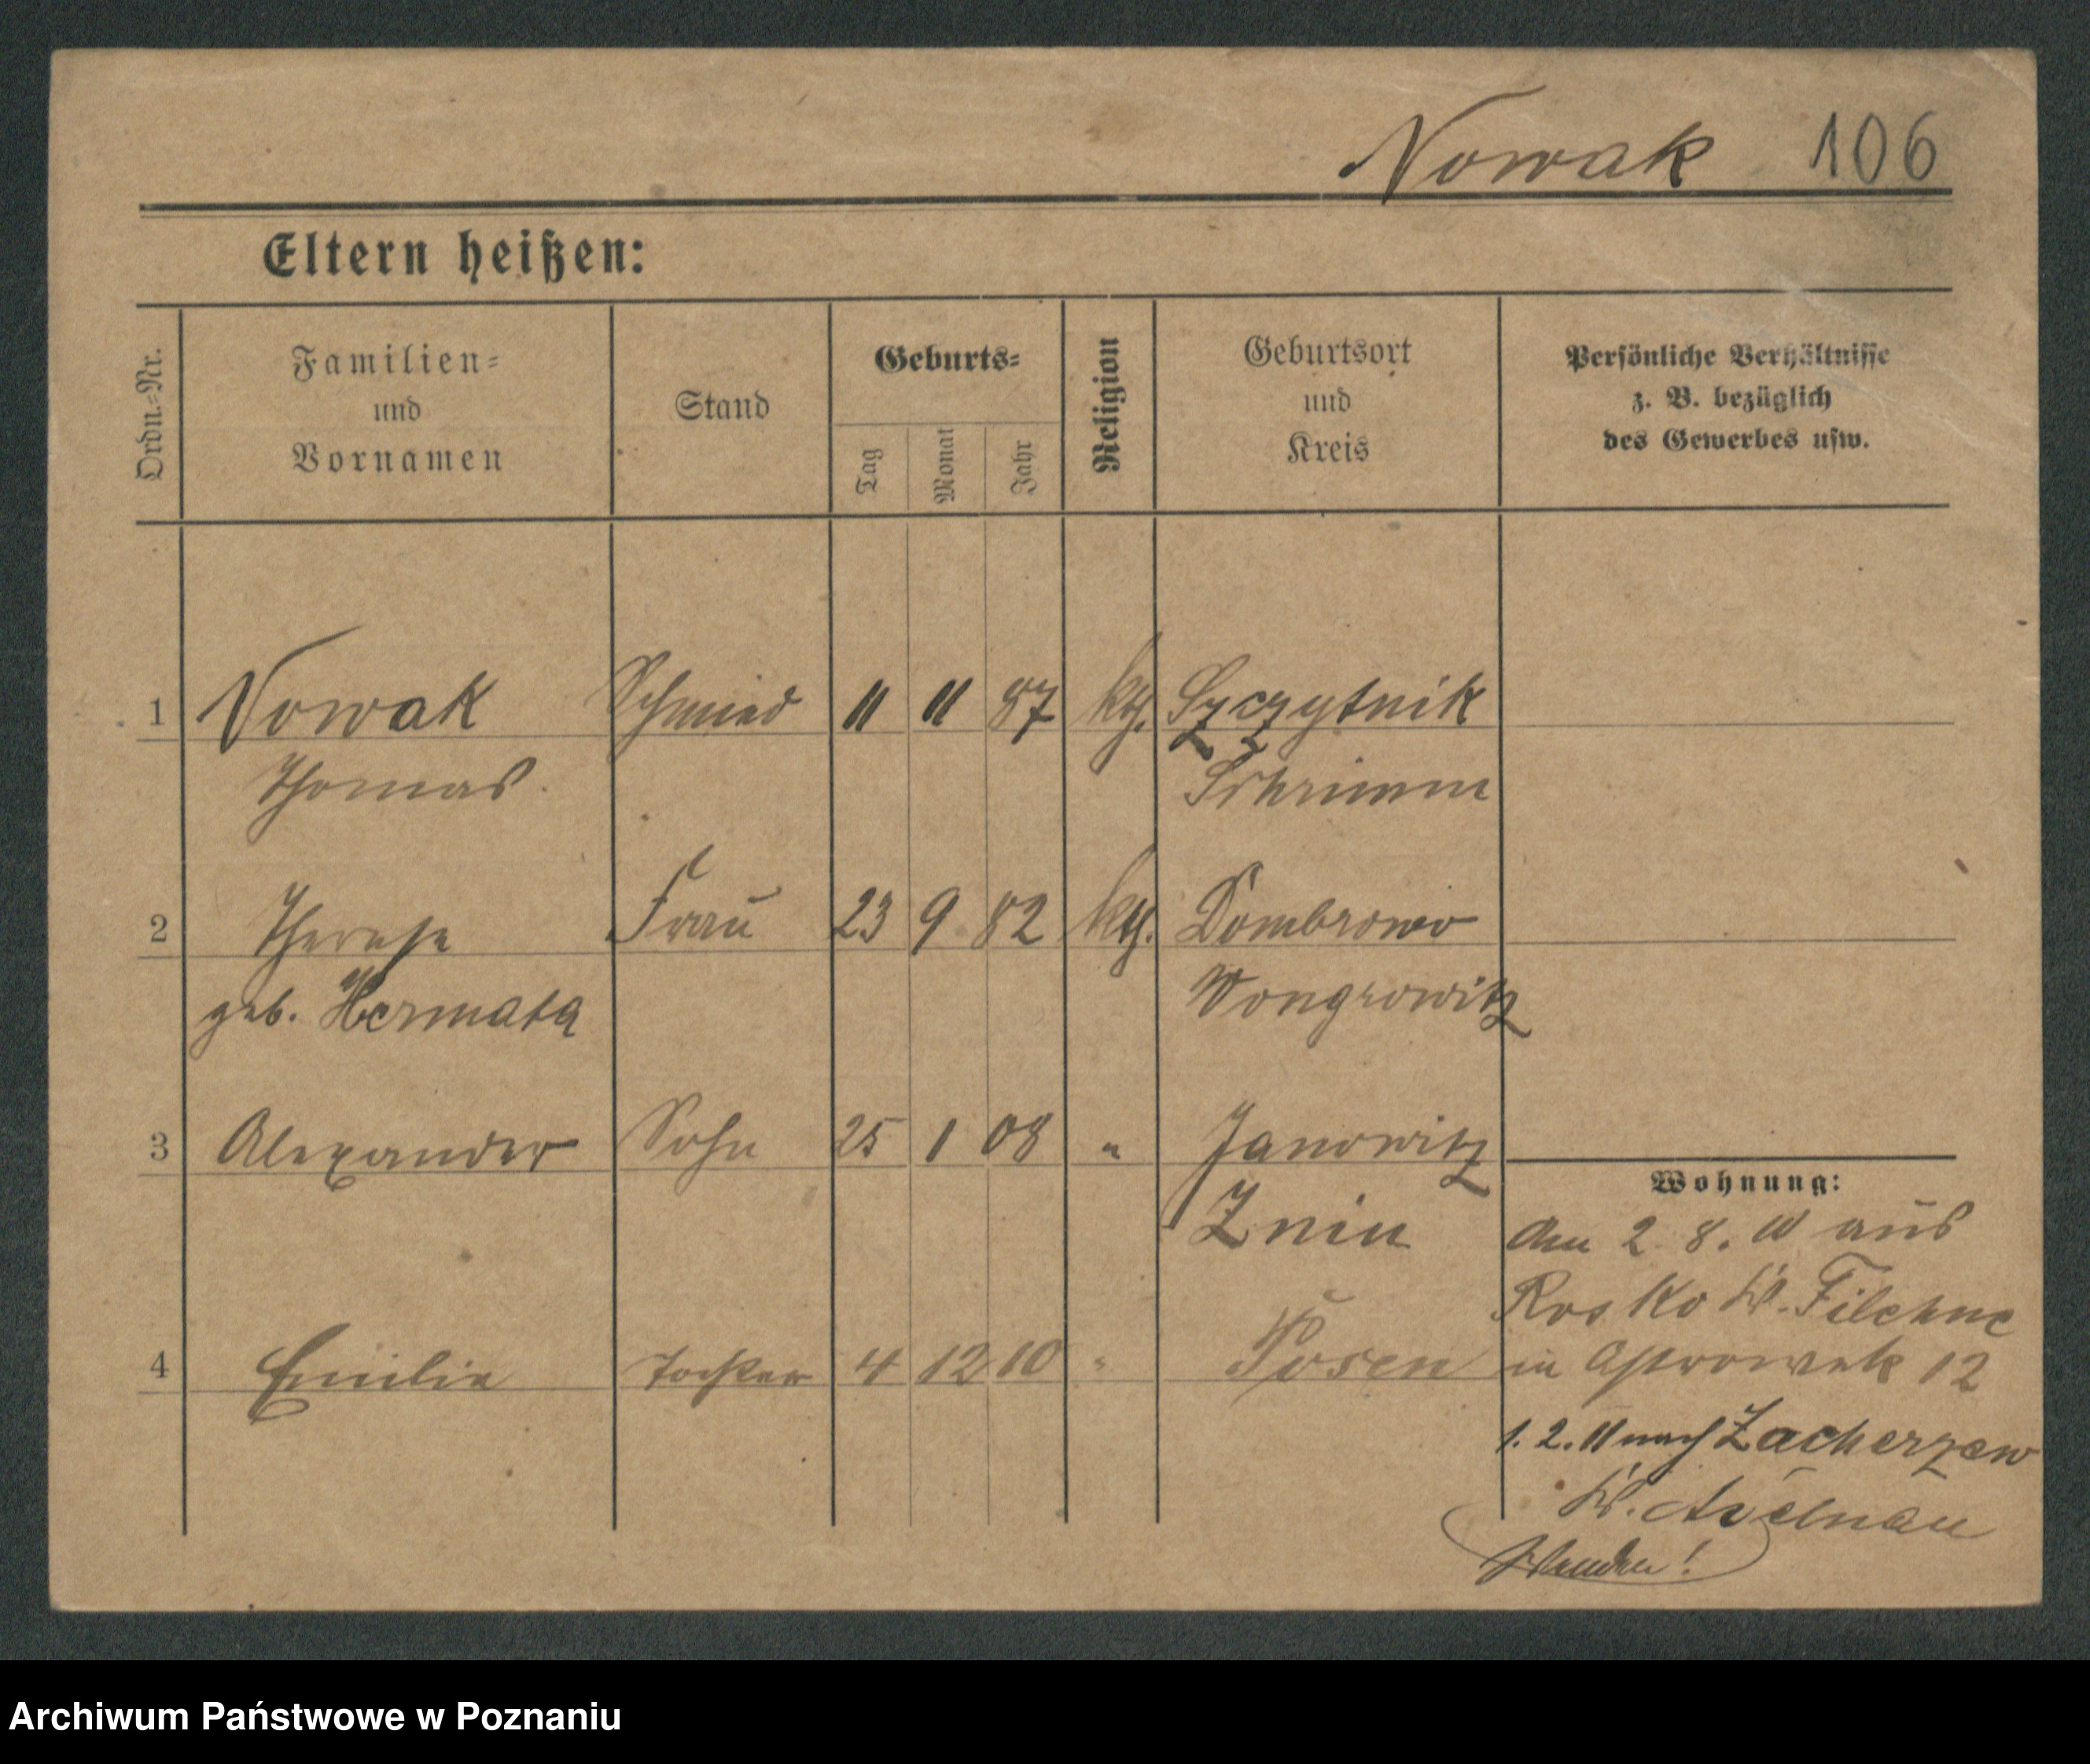 Nowak 106
Eltern heißen:
Ordn.=Nr.
Familien=
und
Vornamen
Stand
Geburts=
Tag
Monat
Jahr
Religion
Geburtsort
und
Kreis
Persönliche Verhältnisse
z. B. bezüglich
des Gewerbes usw.
1 Nowak Schmied 11 11 87 kth. Szczytnik
Thomas. Schrimm
2 Therese Frau 23 9 82 kth. Dombrowo
geb. Hermata Wongrowitz
3 Alexander Sohn 25 1 08 " Janowitz
Znin
Wohnung:
Am 2. 8. 10 aus
Rosko K. Filehne
4 Emilie Tochter 4 12 10 " Posen in Ostrowek 12
1. 2. 11 nach Zacherzew
K. Adelnau
Wenden!
Archiwum Państwowe w Poznaniu